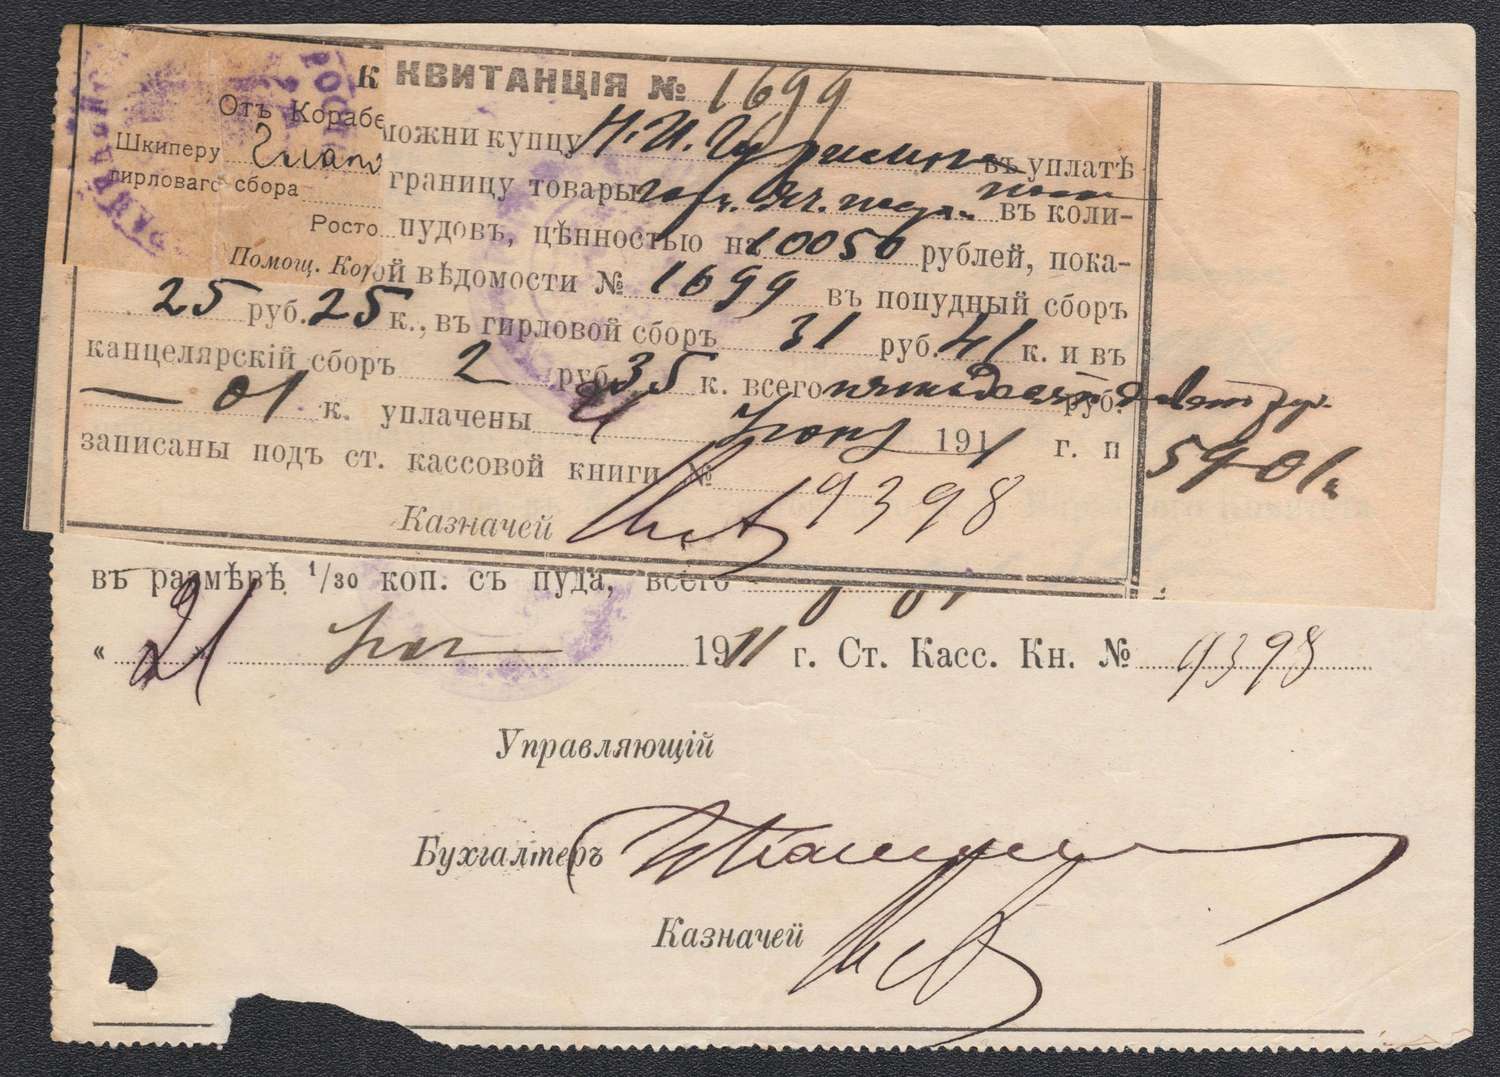 К
КВИТАНЦІЯ № 1699
Отъ Корабе
можни купцу Н. И. въ уплатѣ
Шкиперу
границу товары въ коли-
гирловаго сбора
Росто
пудовъ, цѣнностью на 10050 рублей, пока-
Помощ. Кор
ой вѣдомости № 1699 въ попудный сборъ
25 руб. 25 к., въ гирловой сборъ 31 руб. 41 к. и въ
канцелярскій сборъ 2 руб. 35 к. всего пятьдесятъ девять руб.
— 01 к. уплачены 21 1911 г. и
59-01к
записаны подъ ст. кассовой книги № 9398
Казначей
въ размѣрѣ 1/30 коп. съ пуда, всего
« 21 » 1911 г. Ст. Касс. Кн. № 9398
Управляющій
Бухгалтеръ
Казначей